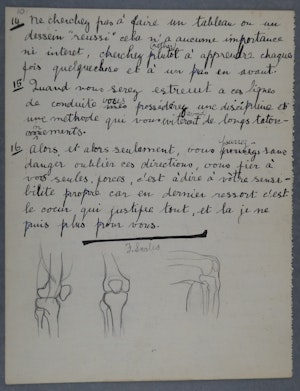 14. Ne cherchez pas à faire un tableau ou un
dessein "réussi" cela n'a aucune importance
ni interet, cherchez plutôt à apprendre chaque
fois quelquechose et à un peu en avant.
15. Quand nous serez astreint a ces lignes
de conduite vous posséderez une discipline et
une methode qui vous de longs taton-
nements.
16. Alors et alors seulement, vous pourrez sans
danger oublier ces directions, vous fier à
vos seules forces, c'est à dire à vôtre sensi-
bilité propre car en dernier ressort c'est
le coeur qui justifie tout, et la je ne
puis plus pour vous.